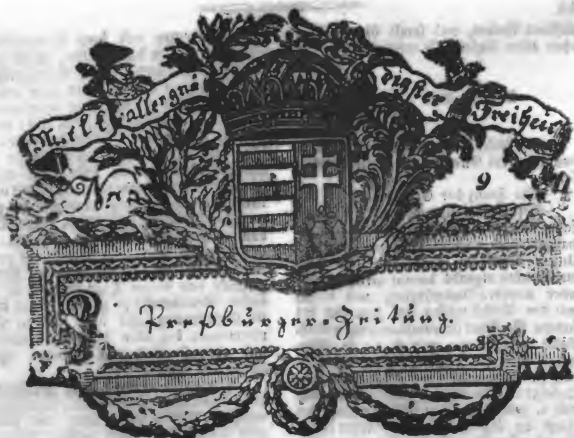 Mit allergnä digster Freiheit
Nro. 9
Preßburger-Zeitung.